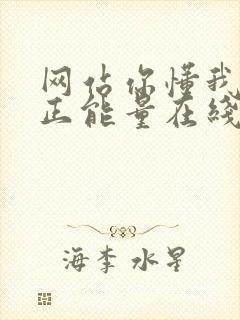 网佔你懂我
正能量在綫
海李水星